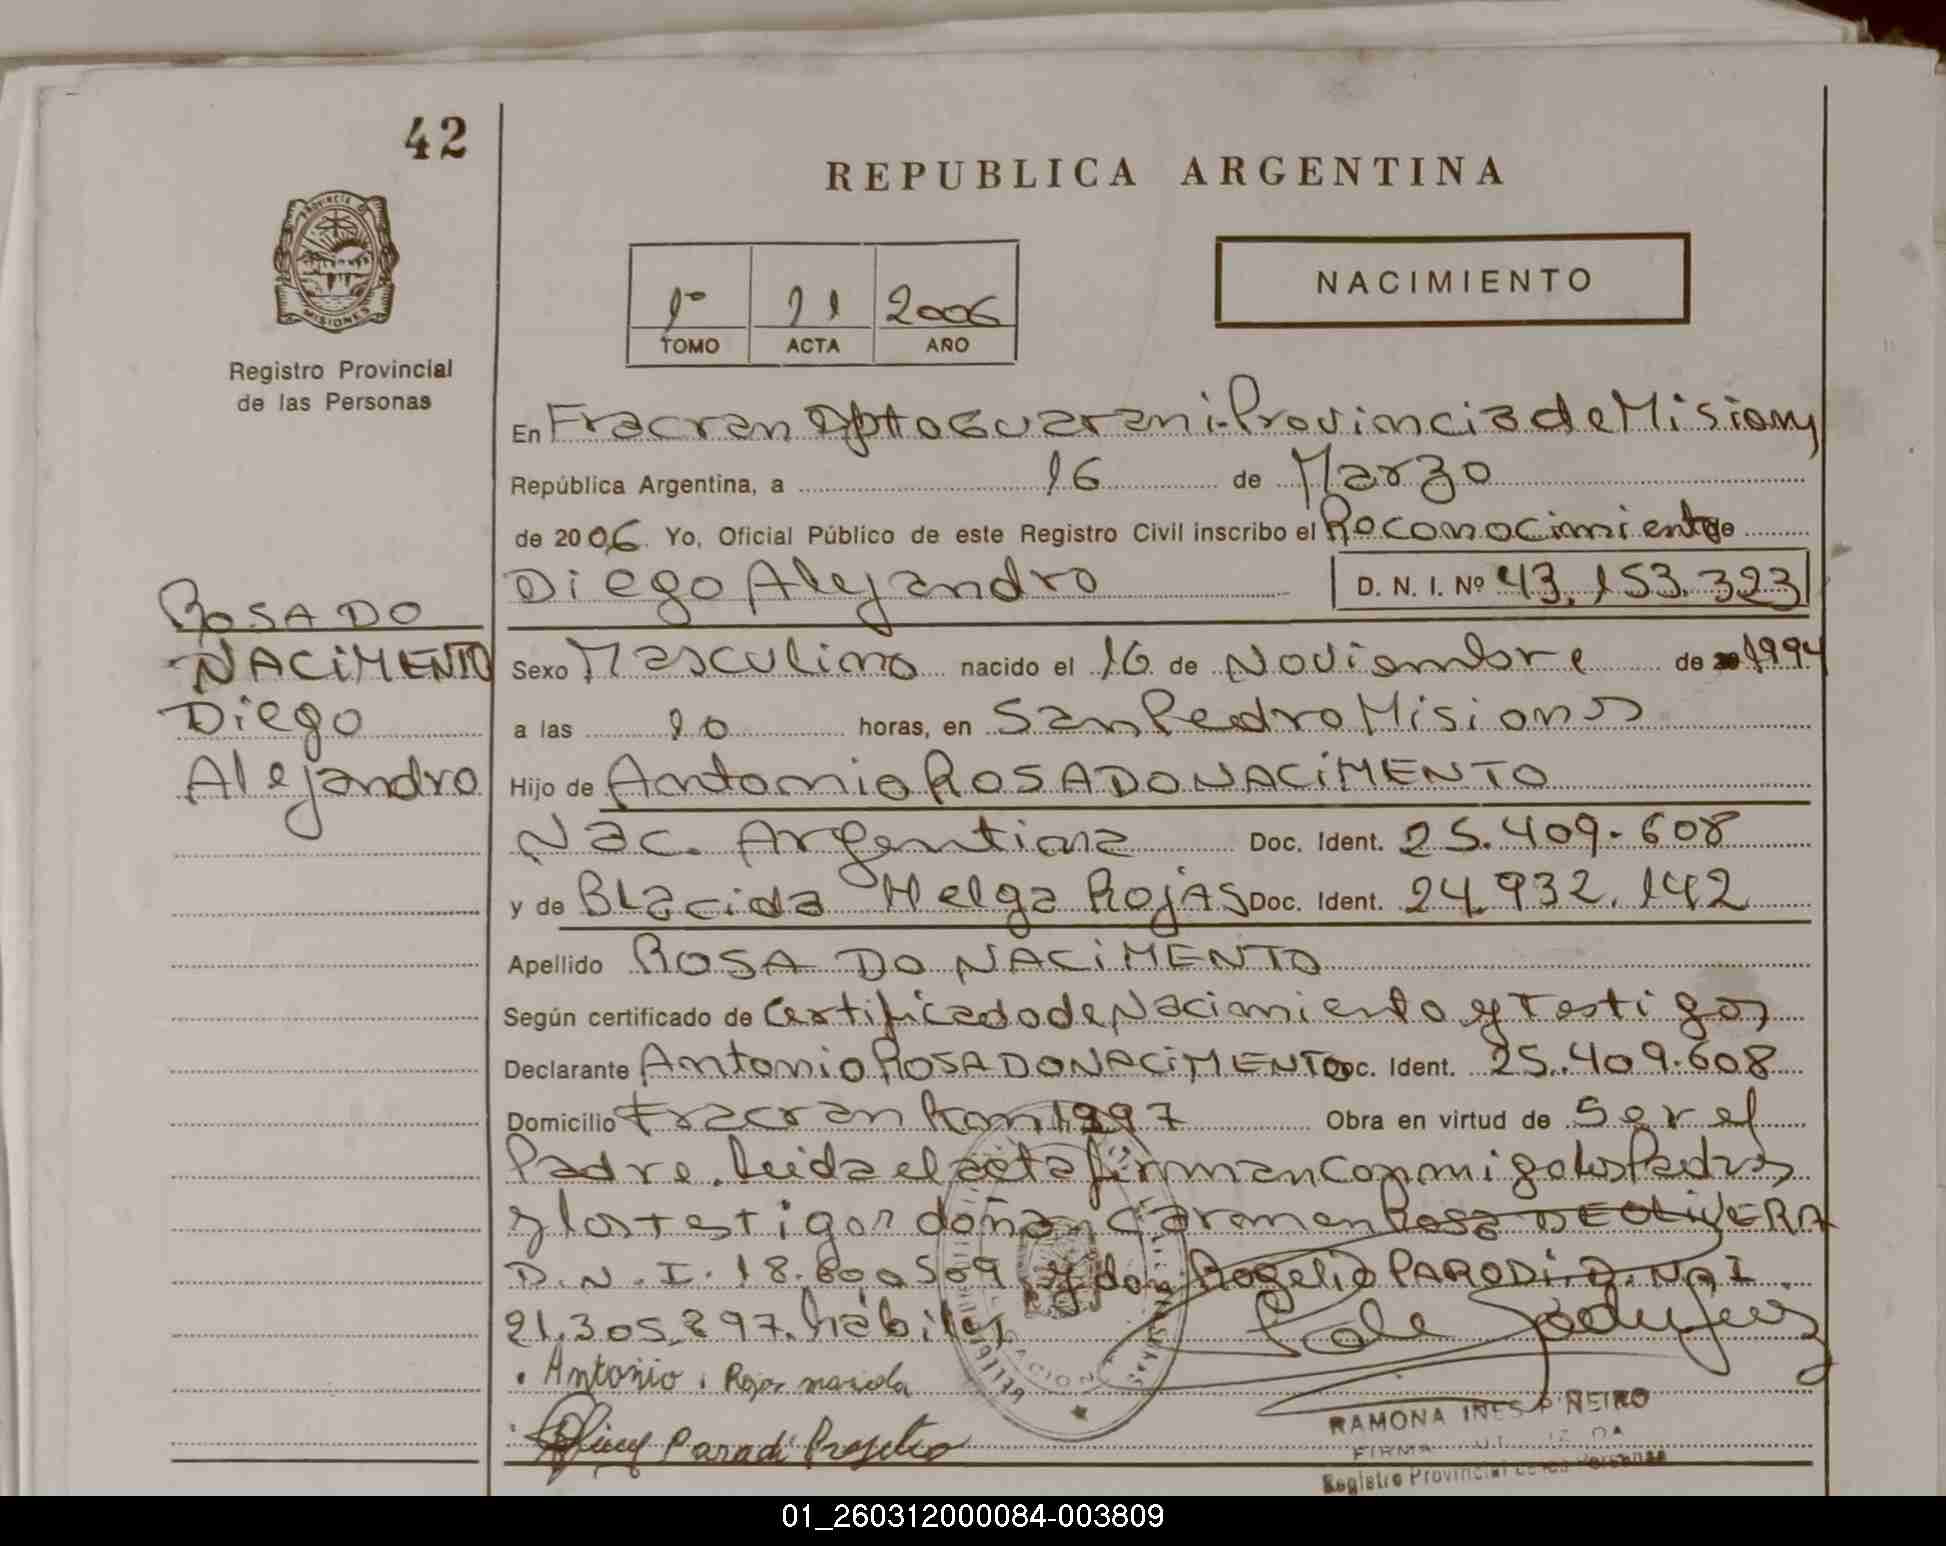 42
REPUBLICA ARGENTINA
PROVINCIA DE
MISIONES
Registro Provincial
de las Personas
1º 21 2006
TOMO ACTA AÑO
NACIMIENTO
En Fracran Dpto Guarani-Provincia de Misiones
República Argentina, a 16 de Marzo
de 2006 Yo, Oficial Público de este Registro Civil inscribo el Reconocimiento de
Diego Alejandro D. N. I. Nº 43.153.323
ROSA DO
NACIMENTO
Diego
Alejandro
Sexo Masculino nacido el 16 de Noviembre de 1994
a las 10 horas, en San Pedro Misiones
Hijo de Antonio ROSA DO NACIMENTO
Nac. Argentina Doc. Ident. 25.409.608
y de BLacida Helga RojAS Doc. Ident. 24.932.142
Apellido ROSA DO NACIMENTO
Según certificado de Certificado de Nacimiento y Testigos
Declarante Antonio ROSA DO NACIMENTO Doc. Ident. 25.409.608
Domicilio Fracran Km 1997 Obra en virtud de Ser el
Padre. Leida el acta firman conmigo los Padres
y los testigos doña Carmen Rosa DE OLIVERA
D.N.I. 18.800509 y don Rogelio PARODI. D.N.I
21.305.897. hábiles
Antonio. Rojas
Parodi Rogelio
RAMONA INES PIÑEIRO
Registro Provincial de las Personas
01_260312000084-003809